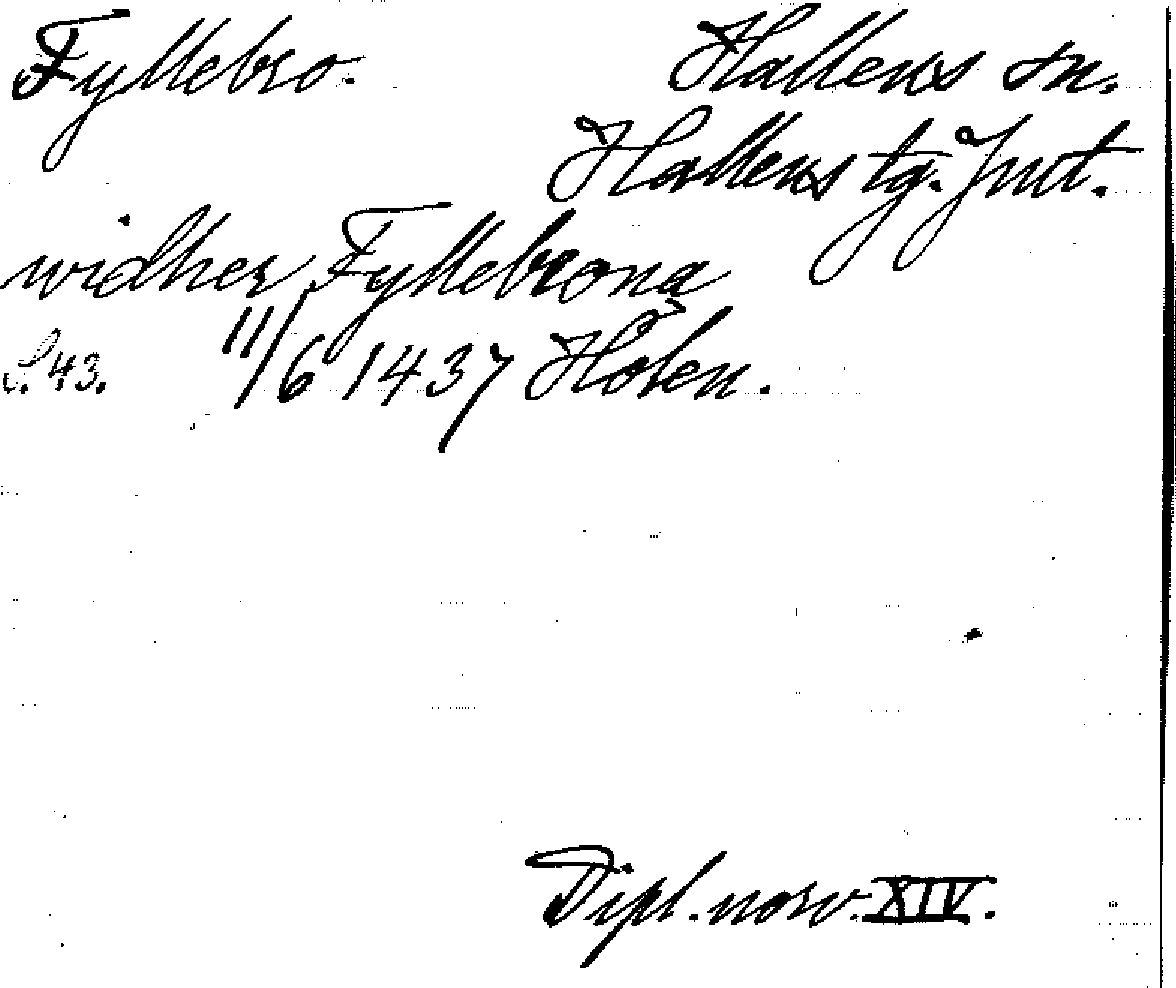 Fyllebro. Hallens sn.
Hallens tg. Jmt.
widher Fyllebrona
S. 43. 11/6 1437 Holen.
Dipl. norv. XIV.